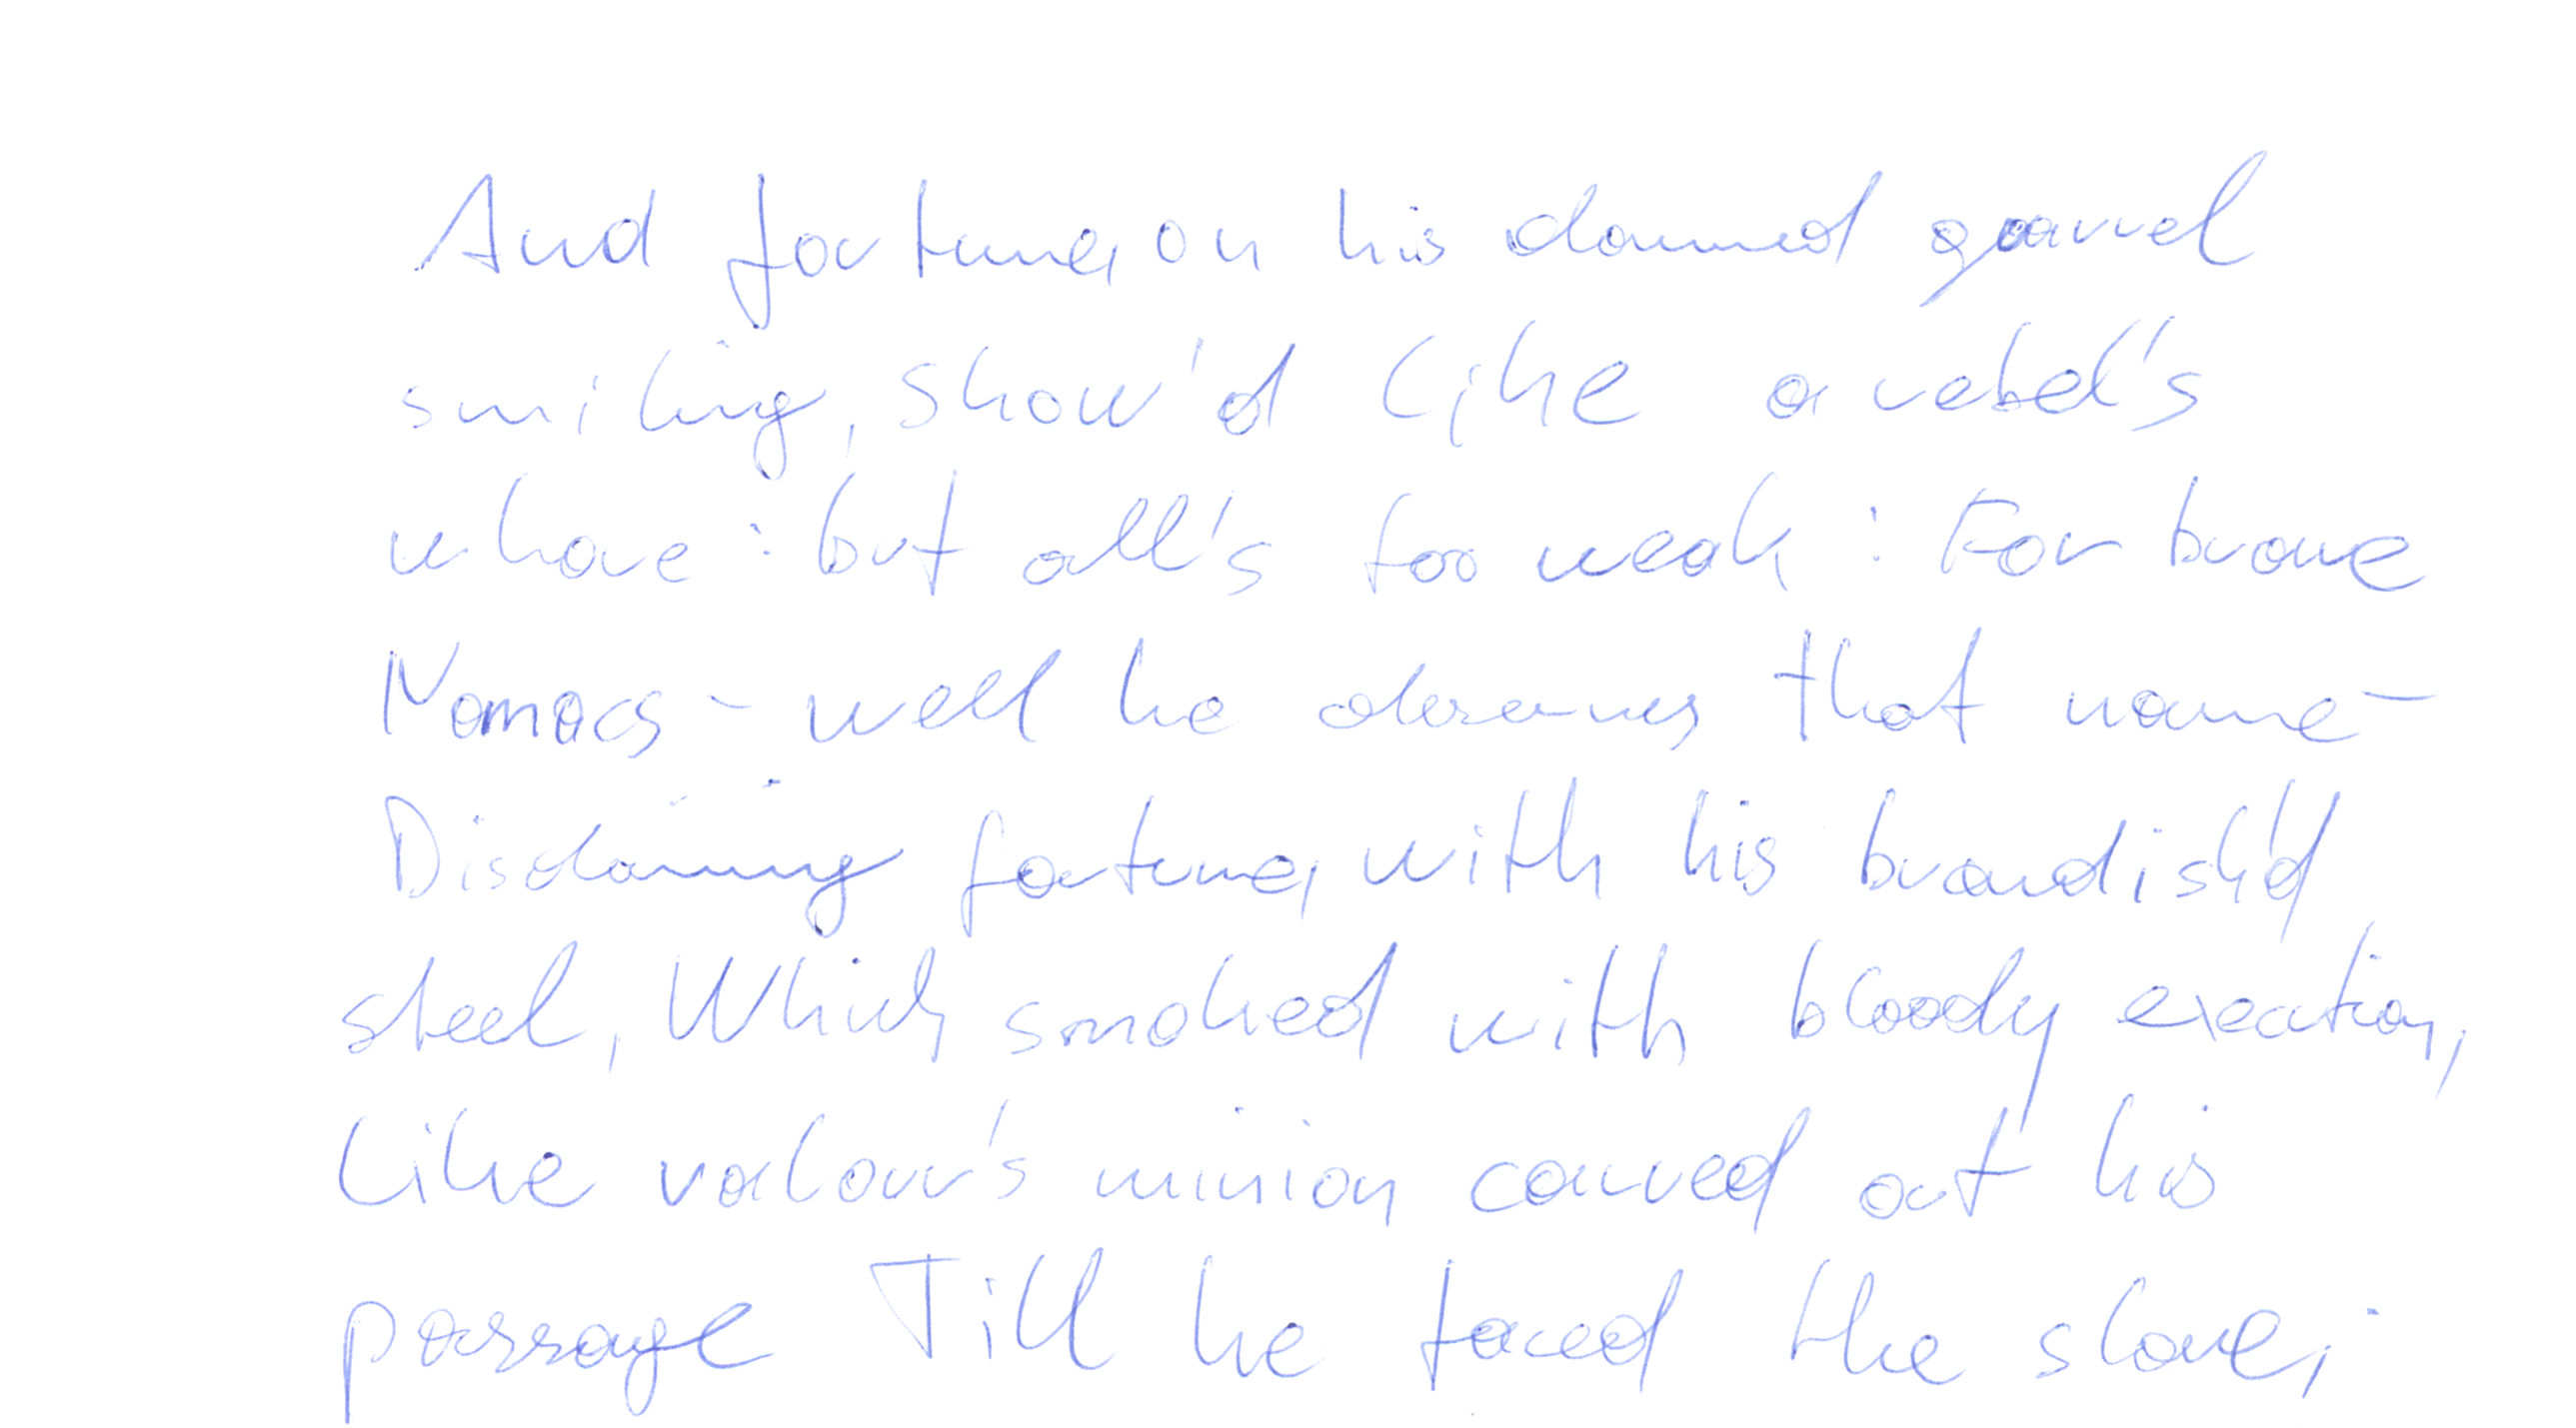 And fortune, on his damned quarrel
smiling, show'd like a rebel's
whore: but all's too weak: For brave
Nomacs - well he deserves that name -
Disdaining fortune, with his brandish'd
steel, Which smoked with bloody execution,
Like valour's minion carved out his
passage Till he faced the slave;